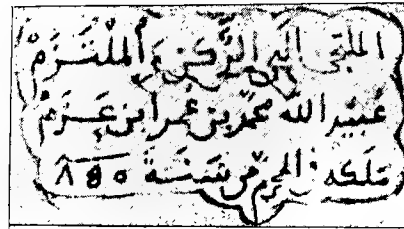 الملتجى الى الركن و الملتزم
عبيد الله محمد بن عمر ابن عزم
ملكه في المحرم من سنة